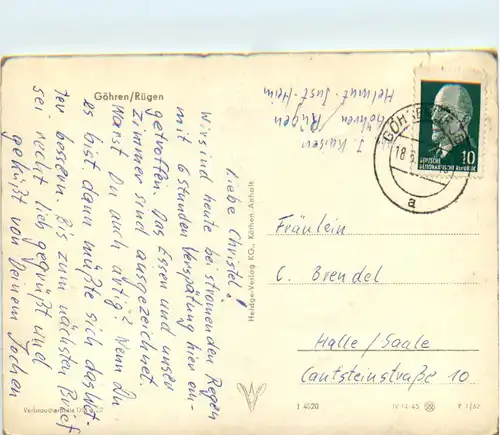 Göhren/Rügen
Liebe Christel!
Wir sind heute bei strömenden Regen
mit 6 Stunden Verspätung hier ein-
getroffen. Das Essen und unser
Zimmer sind ausgezeichnet
Warst Du auch artig? Wenn Du
es bist, dann müßte sich das Wet-
ter bessern. Bis zum nächsten Brief
sei recht lieb gegrüßt und
geküßt von Deinem Jochen
J. Kaiser
Göhren / Rügen
Helmut-Just-Heim
Heldge-Verlag KG., Köthen-Anhalt
GÖHREN
18.
a
10
DEUTSCHE
DEMOKRATISCHE REPUBLIK
Fräulein
C. Brendel
Halle/Saale
Cantsteinstraße 10
Verbraucherpreis
J 4020
IV-14-45
P 1/62